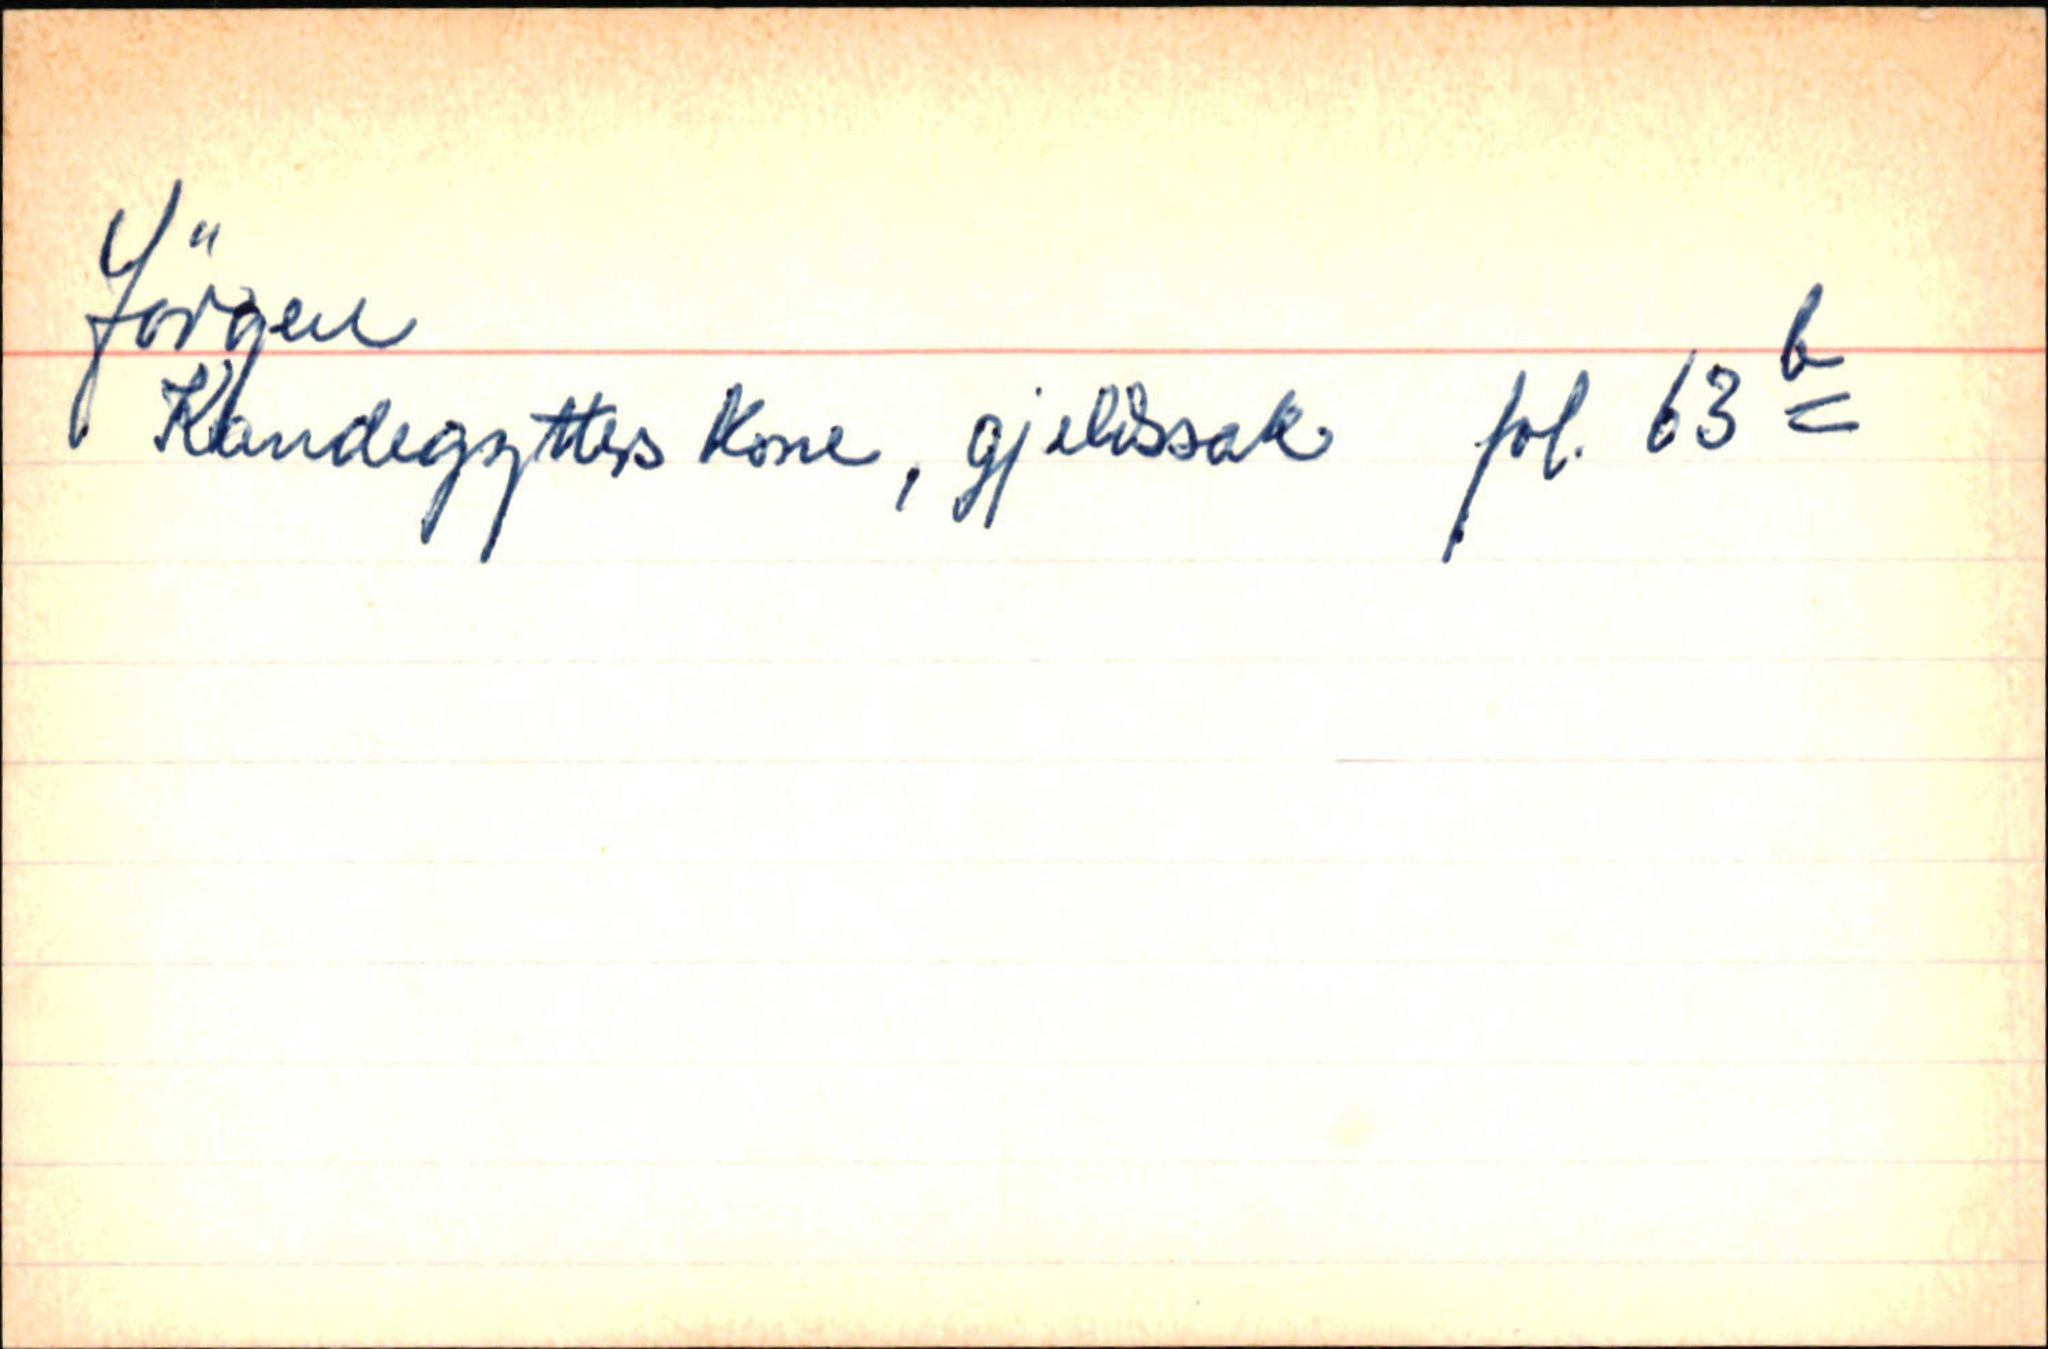 Jörgen
Kandegytters kone, gjeldssak fol. 63 b